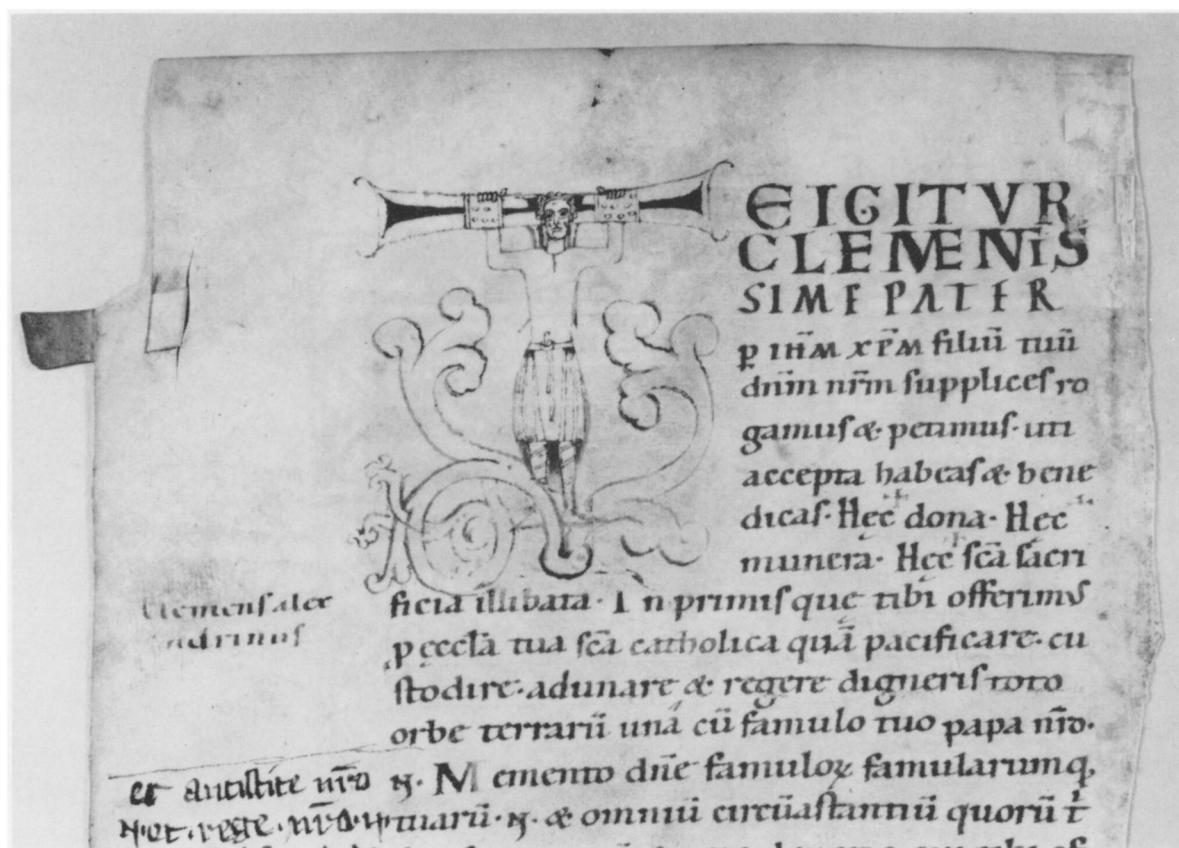 TE IGITVR
CLEMENTIS
SIME PATER
p̱ IHM̄ XPM̄ filiū tuū
dn̄m nr̄m supplices ro
gamus & petimus· uti
accepta habeas & bene
dicas· Hęc dona· Hęc
munera· Hęc sc̄a sacri
ficia illibata· In primis quę tibi offerimus
p̱ ęccl̄a tua sc̄a catholica quā pacificare· cu
stodire· adunare & regere digneris toto
orbe terrarū unā cū famulo tuo papa nr̄o·
et antistite nr̄o N· Memento dn̄e famuloꝝ famularumq,
N· et· rege· nr̄o· N· tuarū· N· & omniū circūastantiū quorū t
Clemens alex
andrinus